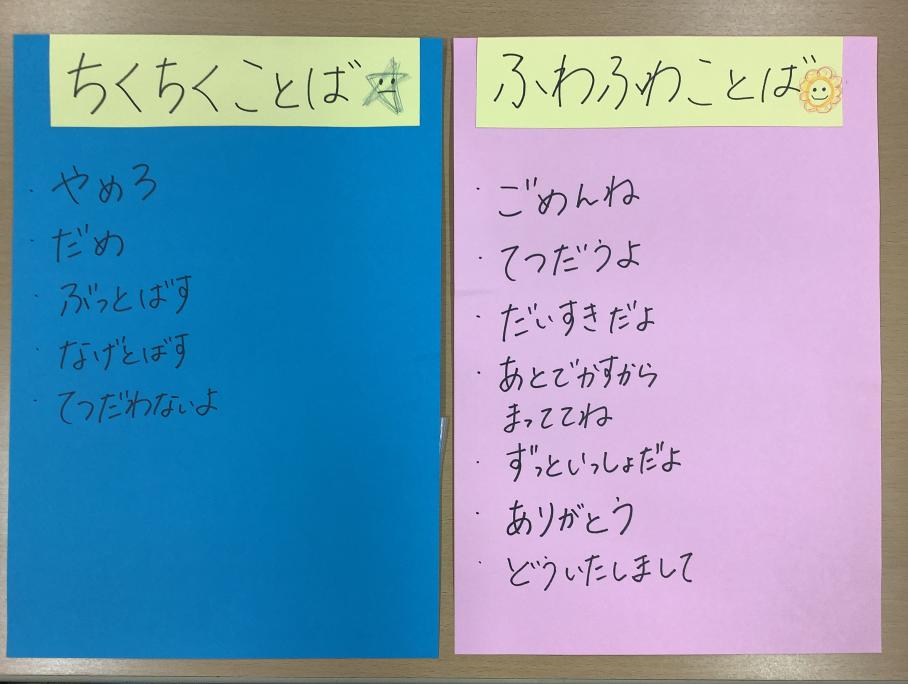 ちくちくことば
・やめろ
・だめ
・ぶっとばす
・なげとばす
・てつだわないよ
ふわふわことば
・ごめんね
・てつだうよ
・だいすきだよ
・あとでかすから
まっててね
・ずっといっしょだよ
・ありがとう
・どういたしまして